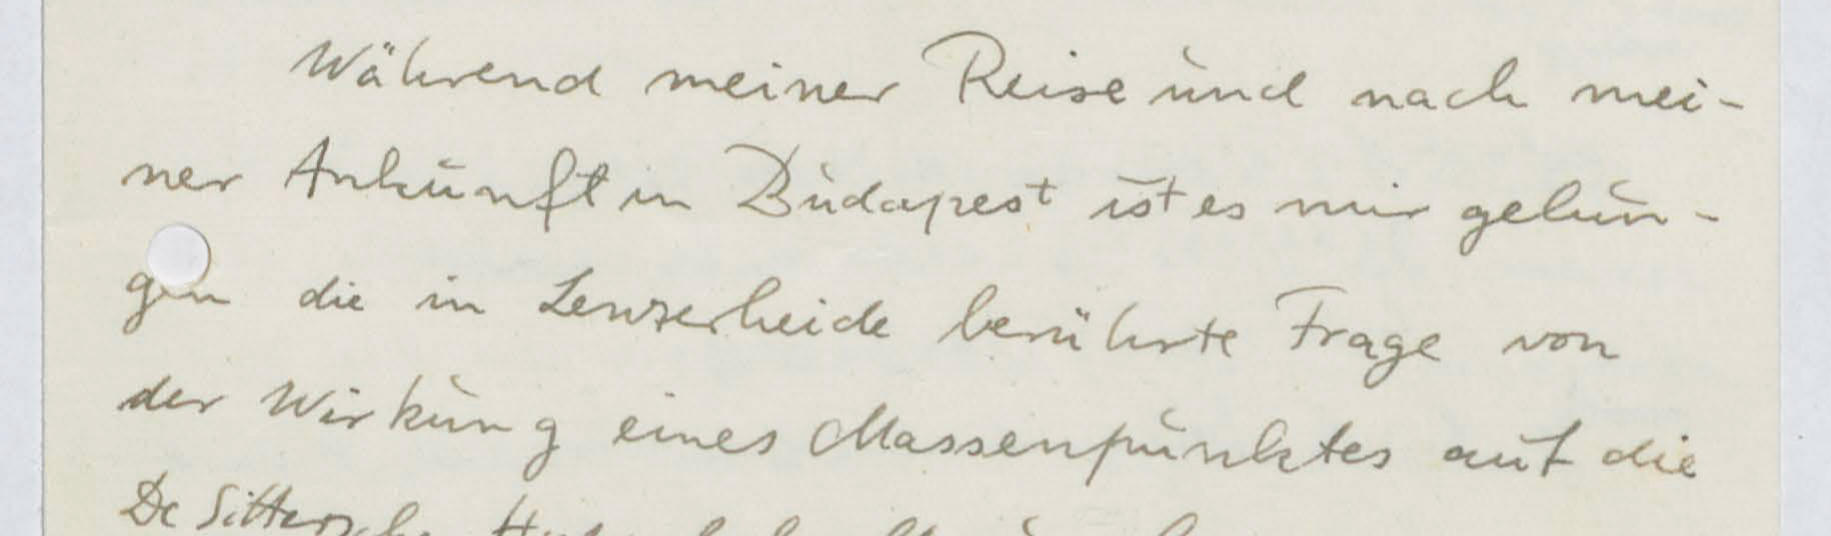 Während meiner Reise und nach mei-
ner Ankunft in Budapest ist es mir gelun-
gen die in Lenzerheide berührte Frage von
der Wirkung eines Massenpunktes auf die
De Sittersche